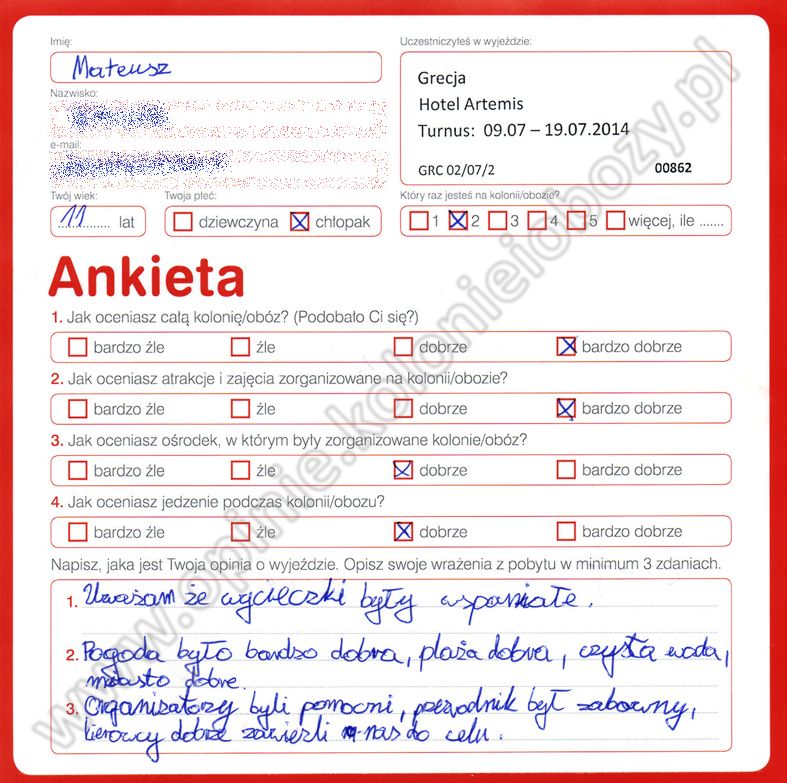 Imię:
Uczestniczyłeś w wyjeździe:
Mateusz
Grecja
Nazwisko:
Hotel Artemis
Turnus: 09.07 – 19.07.2014
e-mail:
GRC 02/07/2 00862
Twój wiek: Twoja płeć: Który raz jesteś na kolonii/obozie?
11 lat dziewczyna chłopak 1 2 3 4 5 więcej, ile .......
Ankieta
1. Jak oceniasz całą kolonię/obóz? (Podobało Ci się?)
bardzo źle źle dobrze bardzo dobrze
2. Jak oceniasz atrakcje i zajęcia zorganizowane na kolonii/obozie?
bardzo źle źle dobrze bardzo dobrze
3. Jak oceniasz ośrodek, w którym były zorganizowane kolonie/obóz?
bardzo źle źle dobrze bardzo dobrze
4. Jak oceniasz jedzenie podczas kolonii/obozu?
bardzo źle źle dobrze bardzo dobrze
Napisz, jaka jest Twoja opinia o wyjeździe. Opisz swoje wrażenia z pobytu w minimum 3 zdaniach.
1. Uważam że wycieczki były wspaniałe.
2. Pogoda było bardzo dobra, plaża dobra, czysta woda,
miasto dobre.
3. Organizatorzy byli pomocni, przewodnik był zabawny,
kierowcy dobrze zawieźli nas do celu.
www.opinie.kolonieiobozy.pl